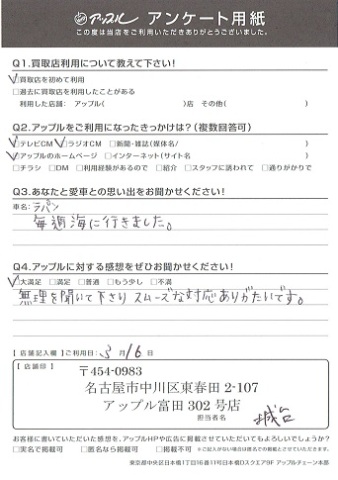 アップル アンケート用紙
この度は当店をご利用いただきありがとうございました。
Q1.買取店利用について教えて下さい!
☑買取店を初めて利用
□過去に買取店を利用したことがある
利用した店舗: アップル( )店 その他( )
Q2.アップルをご利用になったきっかけは?(複数回答可)
☑テレビCM ☑ラジオCM □新聞・雑誌(媒体名/ )
☑アップルのホームページ □インターネット(サイト名 )
□チラシ □DM □利用経験があるので □紹介 □スタッフに誘われて □通りがかりで
Q3.あなたと愛車との思い出をお聞かせください!
車名: ラパン
毎週海に行きました。
Q4.アップルに対する感想をぜひお聞かせください!
☑大満足 □満足 □普通 □もう少し □不満
無理を聞いて下さり スムーズな対応ありがたいです。
【店舗記入欄】ご利用日: 3月16日
【店舗印】
〒454-0983
名古屋市中川区東春田 2-107
アップル富田 302 号店
担当者名
お客様に書いていただいた感想を、アップルHPや広告に掲載させていただいてもよろしいでしょうか?
□実名で掲載可 □匿名なら掲載可 □掲載不可 ※ご記入がない場合は匿名での掲載とさせていただきます。
東京都中央区日本橋1丁目16番11号日本橋Dスクエア9F アップルチェーン本部